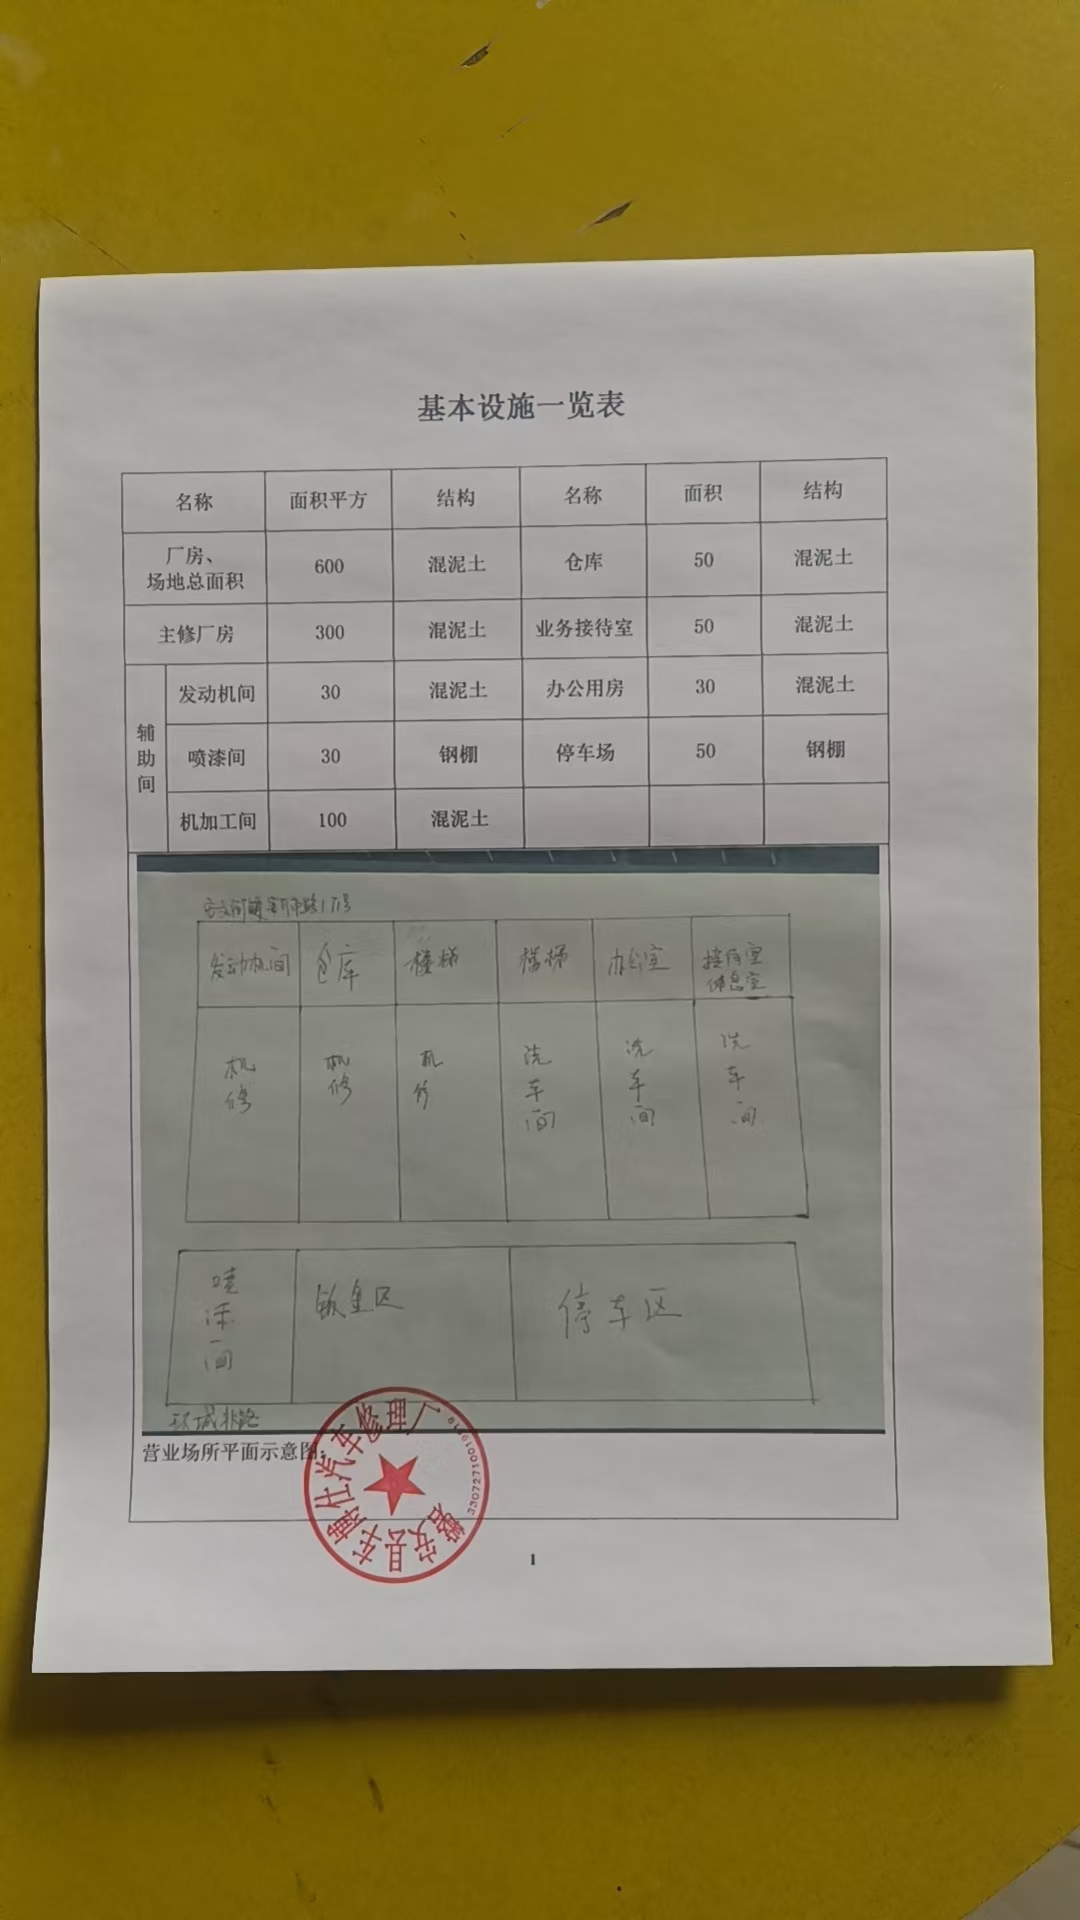 基本设施一览表
名称 面积平方 结构 名称 面积 结构
厂房、
场地总面积 600 混泥土 仓库 50 混泥土
主修厂房 300 混泥土 业务接待室 50 混泥土
辅助间
发动机间 30 混泥土 办公用房 30 混泥土
喷漆间 30 钢棚 停车场 50 钢棚
机加工间 100 混泥土
发动机间 仓库 楼梯 楼梯 办公室 接待室
休息室
机修 机修 机修 洗车间 洗车间 洗车间
喷漆间 钣金区 停车区
环城北路
营业场所平面示意图：
磐安县车博仕汽车修理厂
1